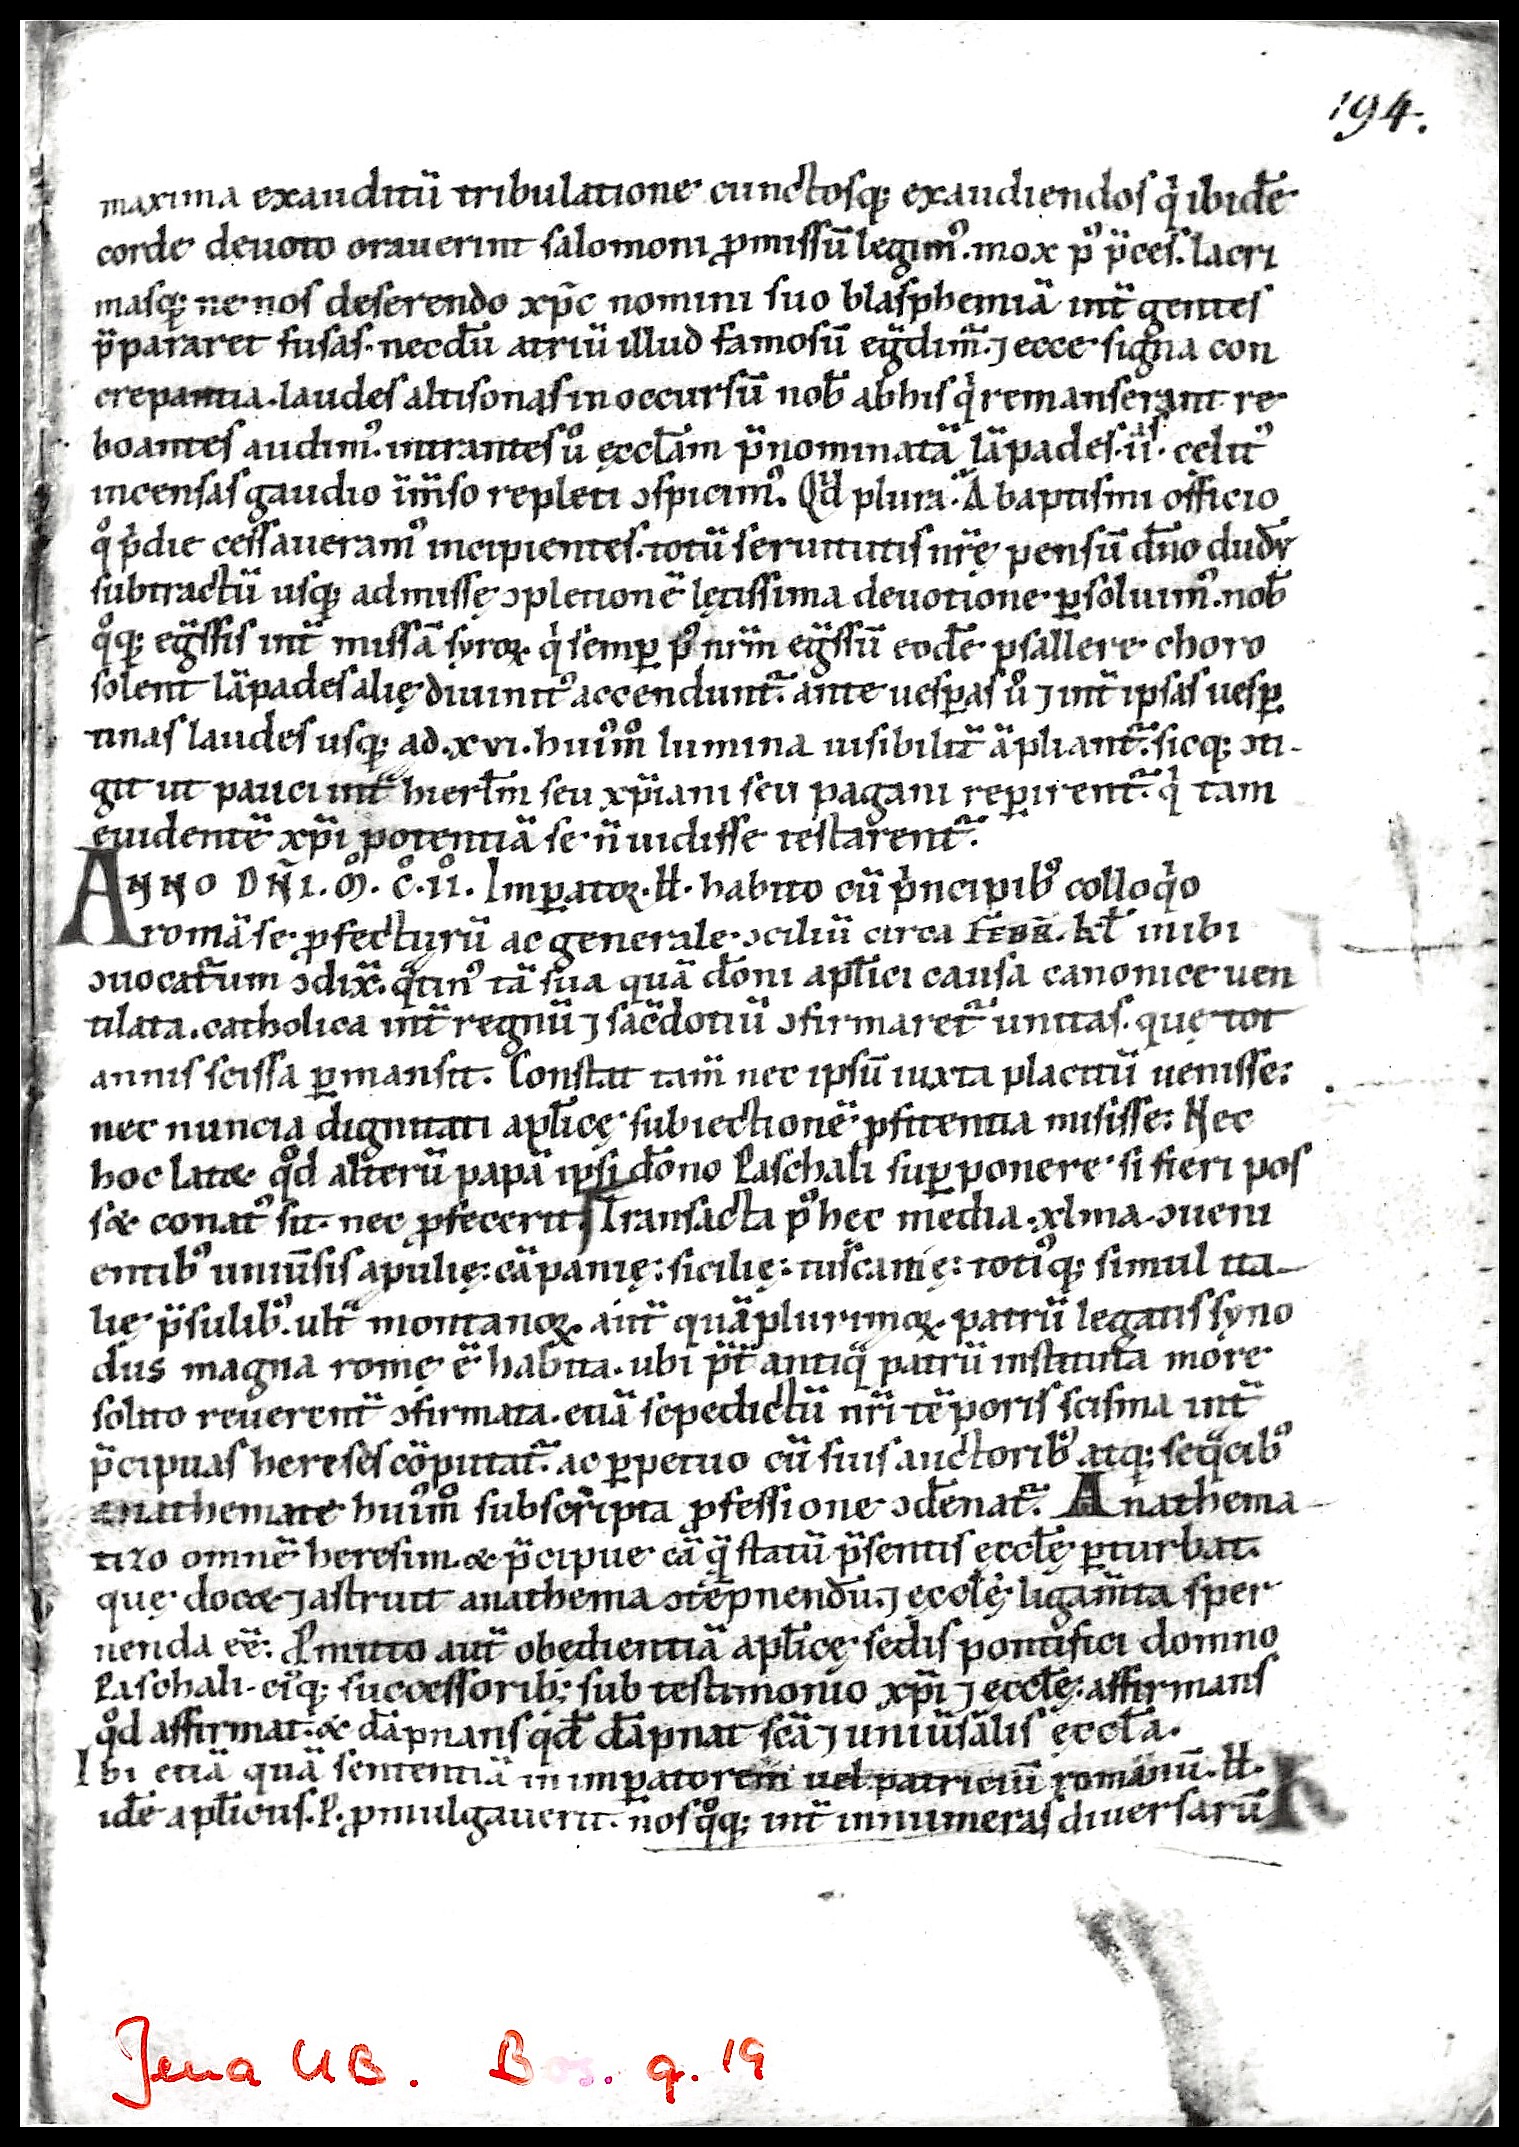 194.
maxima exauditū tribulatione cunctosq; exaudiendos q̇ ibidē
corde deuoto orauerint salomoni ꝓmissū legim᾿. mox p᾿ p̄ces. lacri
masq; ne nos deserendo xp̄c nomini suo blasphemiā int̄ gentes
p̄pararet fusas. necdū atriū illud famosū eḡdim̄. ⁊ ecce signa con
crepantia. laudes altisonas in occursū nob̄ ab his q̇ remanserant re
boantes audim᾿. intrantes ů ęcctām p̄nominatā lāpades .ii. celit᾿
incensas gaudio im̄so repleti ɔspicim᾿. Qđ plura. A baptismi officio
q̊ ṗdie cessaueram᾿ incipientes. totū seruitutis nr̄ę pensū dn̄o dudū
subtractū usq; ad missę ɔpletionē lętissima deuotione ꝑsoluim᾿. nob̄
q̊q; eḡssis int̄ missā syroꝝ q̇ semꝑ p᾿ nr̄m eḡssū eodē psallere choro
solent lāpades alię diuinit᾿ accendunt᷑. ante uesꝑas ů ⁊ int̄ ipsas uesꝑ
tinas laudes usq; ad .xvi. hui᾿m̊ lumina uisibilit̄ āpliant᷑. sicq; ɔti-
git ut pauci int̄ hierł̄m seu xp̄iani seu pagani reꝑirent᷑. q̇ tam
euidentē xp̄i potentiā se n̄ uidisse testarent᷑.
ANNO DN̄I. M̊. C̊. II. Imꝑatoꝝ. H. habito cū ṗncipib᾿ colloq̇o
romā se ꝓfecturū ac generale ɔciliū circa kł inibi
ɔuocat᷑um ɔdix̄. q̄tin᾿ tā sua quā dōni apł̄ici causa canonice uen
tilata. catholica int̄ regnū ⁊ sac̄dotiū ɔfirmaret᷑ unitas. quę tot
annis scissa ꝑmansit. Constat tam̄ nec ipsū iuxta placitū uenisse:
nec nuncia dignitati apł̄icę subiectionē ꝓfitentia misisse: Nec
hoc lat& q̊d alterū papā ipsi dōno Paschali suꝑponere si fieri pos
s& conat᾿ sit. nec ꝓfecerit. Transacta p᾿ hęc media .xlma. ɔueni
entib᾿ uniūsis apulię: cāpanię: sicilię: tuscanię: toti᾿q; simul ita-
lię p̄sulib᾿. ult̄ montanoꝝ aūt quāplurimoꝝ patrū legatis syno
dus magna romę ē habita. ubi p̄t̄ antiq̄ patrū instituta more
solito reuerent̄ ɔfirmata. etiā sepedictū nr̄i tēporis scisma int̄
p̄cipuas hereses cōputat᷑. ac ꝑpetuo cū suis auctorib᾿ atq; seq̄cib᾿
anathemate hui᾿m̊ subscripta ꝓfessione ɔdēnat᷑. Anathema-
tizo omnē heresim. & p̄cipue eā q̄ statū p̄sentis ęccłę ꝑturbat.
que doc& ⁊ astruit anathema ɔtēpnendū. ⁊ ęccłę ligam̄ta sper
nenda eē: Pmitto aūt obedientiā apł̄icę sedis pontifici domno
Paschali. ei᾿q; successorib; sub testimonio xp̄i ⁊ ęccłę: affirmans
q̊d affirmat. & dāpnans q̊d dāpnat scā ⁊ uniūsalis ęccła.
Ibi etiā quā sententiā in imꝑatorem uel patriciū romanū. H.
idē apł̄icus. P. ꝓmulgauerit. nos q̊q; int̄ innumeras diuersarū
Jena UB. Bos. q. 19